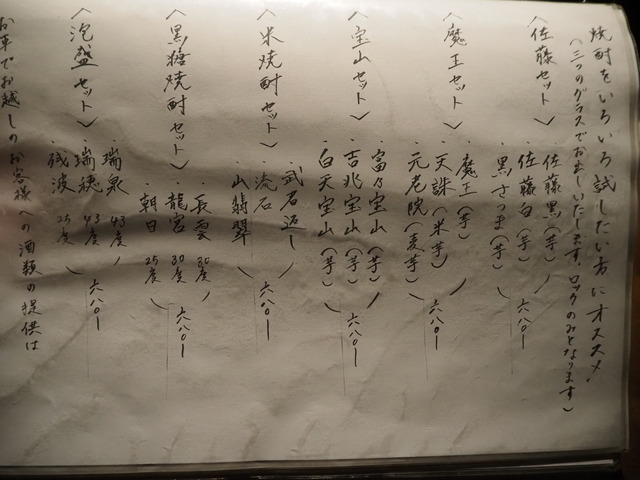 焼酎をいろいろ試したい方にオススメ
(三つのグラスでお出しいたします。ロックのみとなります)
〈佐藤セット〉
・佐藤黒(芋)
・佐藤白(芋)
・黒さつま(芋)
六八〇ー
〈魔王セット〉
・魔王(芋)
・天誅(米芋)
・元老院(麦芋)
六八〇ー
〈宝山セット〉
・富乃宝山(芋)
・吉兆宝山(芋)
・白天宝山(芋)
六八〇ー
〈米焼酎セット〉
・武者返し
・流石
・山翡翠
六八〇ー
〈黒糖焼酎セット〉
・長雲 30度
・龍宮 30度
・朝日 25度
六八〇ー
〈泡盛セット〉
・瑞泉 43度
・瑞穂 43度
・残波 25度
六八〇ー
お車でお越しのお客様への酒類の提供は